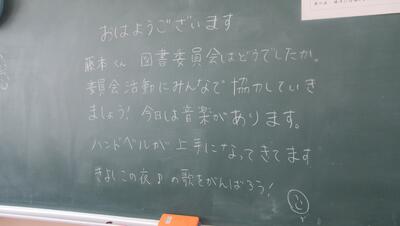 おはようございます
藤本くん 図書委員会はどうでしたか。
委員会活動にみんなで協力していき
ましょう！今日は音楽があります。
ハンドベルが上手になってきてます
きよしこの夜♪の歌をがんばろう！